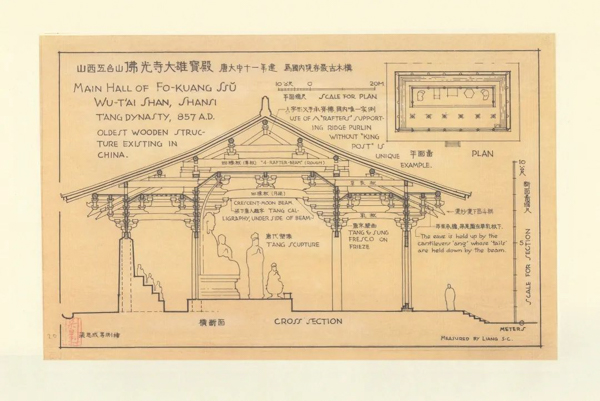 山西五台山佛光寺大雄寶殿 唐大中十一年建 爲國内現存最古木構
MAIN HALL OF FO-KUANG SSŬ
WU-T'AI SHAN, SHANSI
T'ANG DYNASTY, 857 A.D.
OLDEST WOODEN STRUC-
TURE EXISTING IN
CHINA.
10 公尺 0 20M
平面縮尺 SCALE FOR PLAN
USE OF 人 "RAFTERS" SUPPORT-
ING RIDGE PURLIN
WITHOUT "KING
POST" IS
UNIQUE
EXAMPLE.
平面圖 PLAN
"4-RAFTER-BEAM" (ROUGH)
CRESCENT-MOON BEAM
T'ANG CAL-
LIGRAPHY, UNDER SIDE OF BEAM
唐代塑像
T'ANG SCUPTURE
T'ANG & SUNG
FRESCO ON
FRIEZE
The eave is held up by the
cantilevers 'ang' whose 'tails'
are held down by the beam.
10 公尺
5
SCALE FOR SECTION
0
METERS
橫斷面 CROSS SECTION
MEASURED BY LIANG S.C.